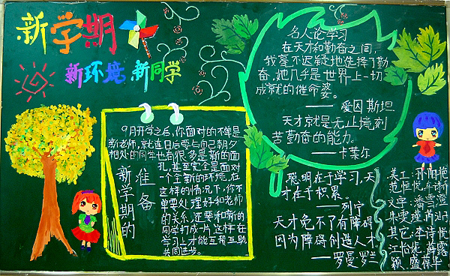 新学期
新环境 新同学
新学期的
准备
9月开学之后,你面对的不单是
新老师,就连日后要与自己朝夕
相处的同学也有很多是新的面
孔,甚至完全是面对
一个全新的环境,在
这样的情况下,你不
单要处理好和老师
的关系,还要和新的
同学打成一片,这样在
学习上才能互相互助
共同进步。
名人论学习
在天才和勤奋之间,
我毫不迟疑地选择了勤
奋,她几乎是世界上一切
成就的催命婆。
——爱因斯坦
天才就是无止境刻
苦勤奋的能力
——卡莱尔
聪明在于学习,天
才在于积累
——列宁
天才免不了有障碍
因为障碍创造人才
——罗曼罗兰